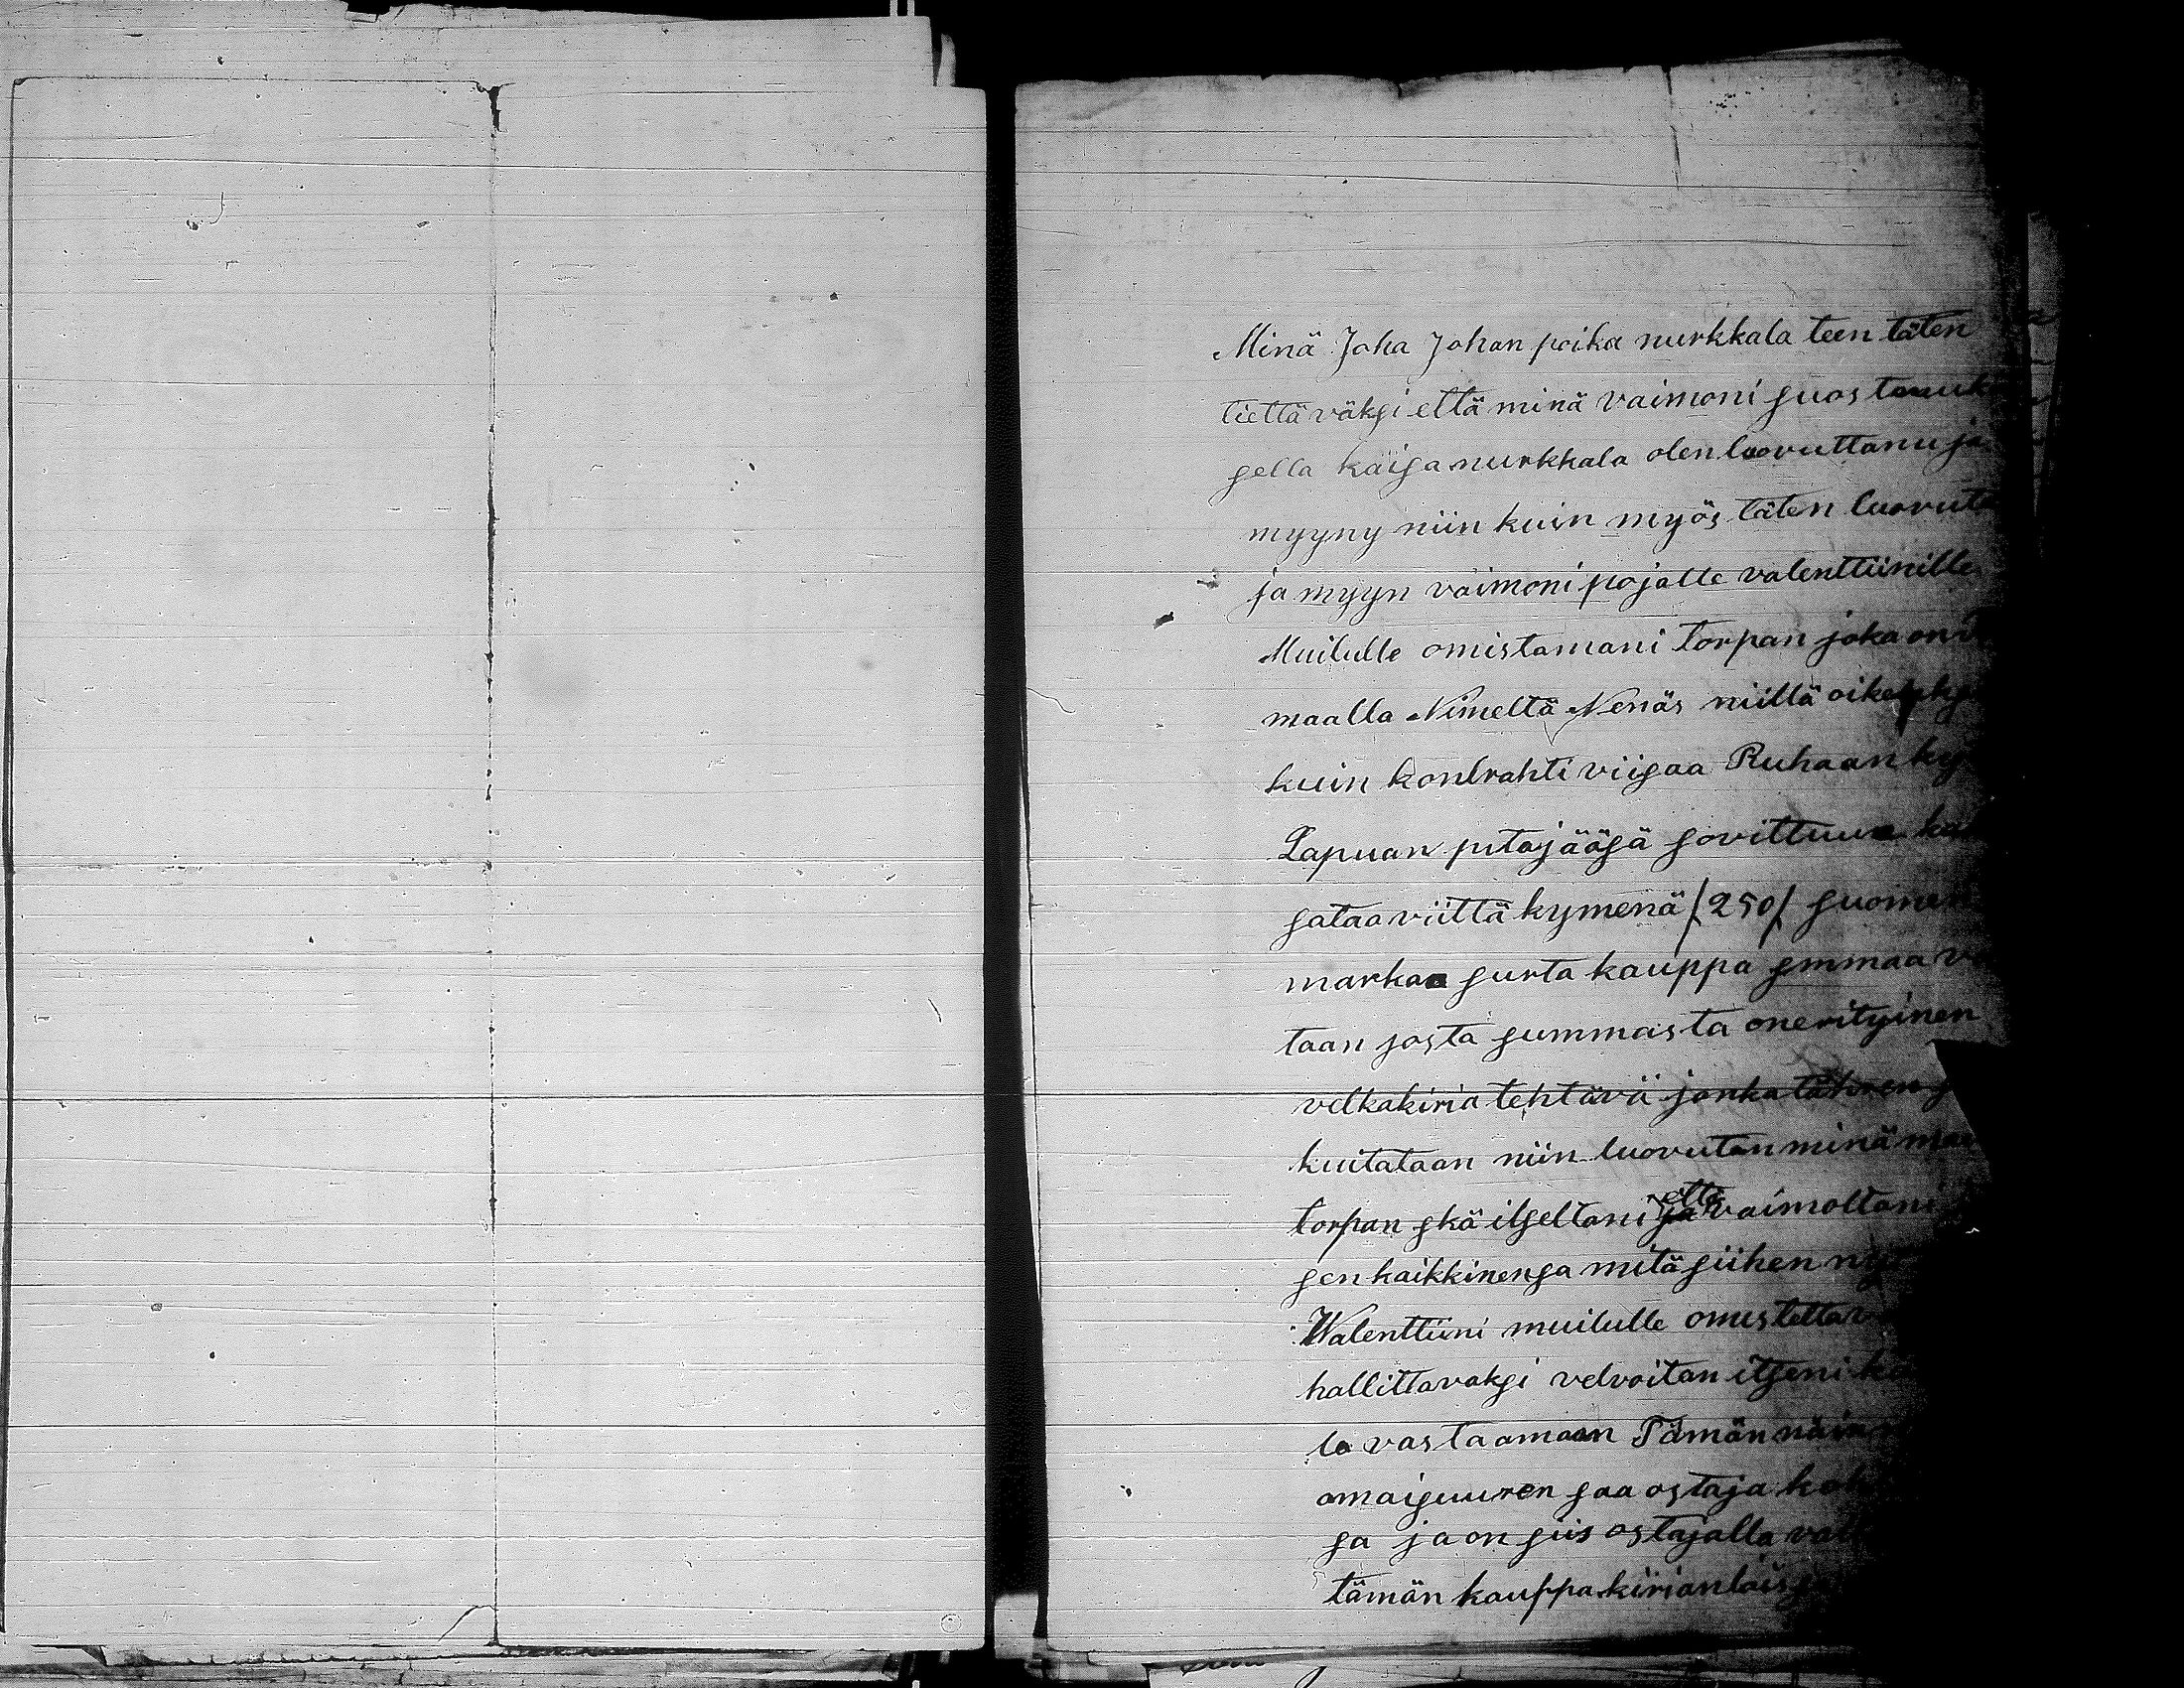 Minä Joha Johan poika nurkkala teen täten
tiettäväksi että minä vaimoni suostumuk
sella kaisa nurkkala olen luovuttanu ja
myyny niin kuin myös täten luovuta
ja myyn vaimoni pojalle valenttiinille
Muilulle omistamani torpan joka on
maalla Nimeltä Nenäs niillä oikeuks
kuin kontrahti viisaa Ruhaan ky
Lapuan pitäjääsä sovittuun
sataa viittä kymenä /250/ suomen
markaa surta kauppa smmaa va
taan josta summasta on erityinen
velkakiria tehtävä jonka tähren
kuitataan niin luovutan minä
torpan skä itseltäni että vaimoltani
sen kaikkinensa mitä siihen ny
Walenttiini muilulle omistettav
hallittavaksi velvoitan itseni
la vastaamaan Tämän näin
omaisuuren saa ostaja
sa ja on siis ostajalla val
tämän kauppakirian